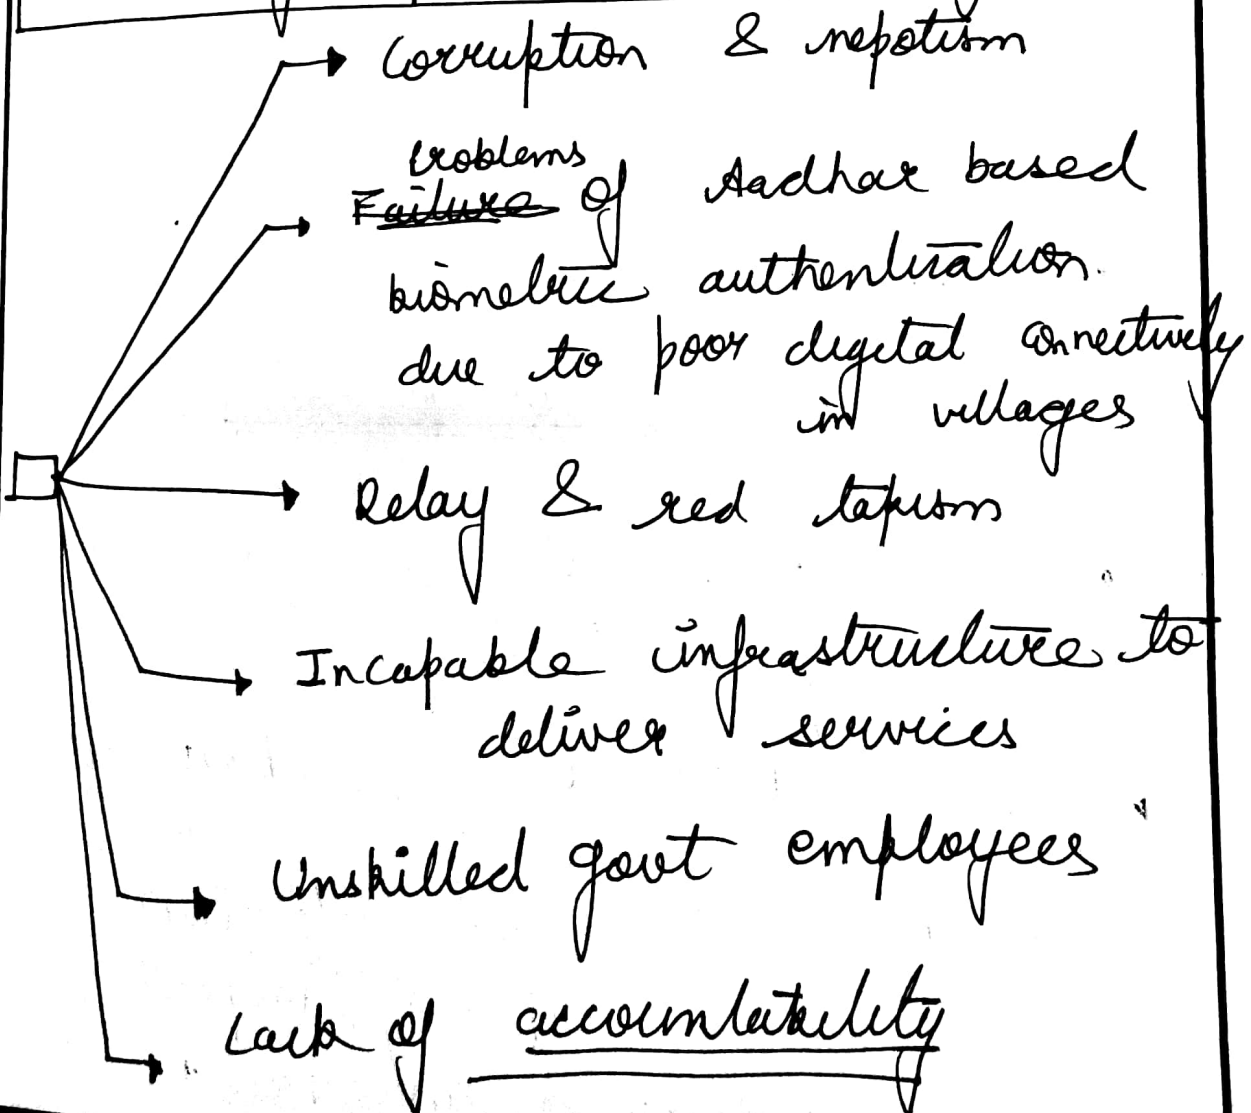 Corruption & nepotism
problems
Failure of Aadhar based
biometric authentication.
due to poor digital connectively
in villages
Delay & red tapism
Incapable infrastructure to
deliver services
Unskilled govt employees
Lack of accountability